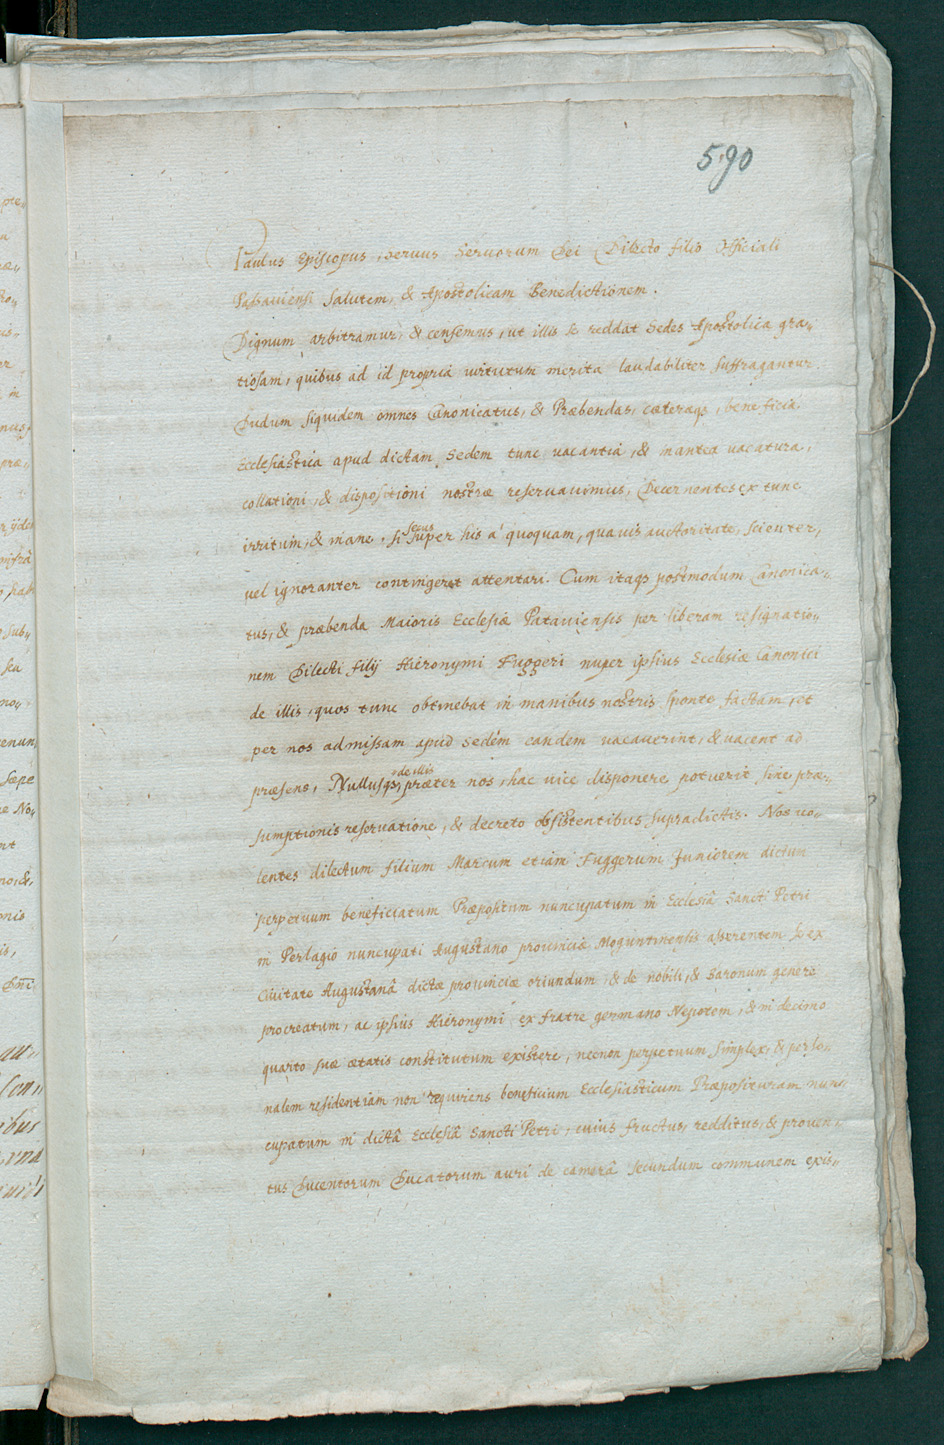 590
Paulus Episcopus, servus Servorum Dei Dilecto filio Officiali
Passaviensi Salutem, & Apostolicam Benedictionem.
Dignum arbitramur, & censemus, ut illis se reddat Sedes Apostolica gra„
tiosam, quibus ad id propria virtutum merita laudabiliter suffragantur
Dudum siquidem omnes Canonicatus, & Præbendas, cæteraqȝ, beneficia
Ecclesiastica apud dictam Sedem tunc vacantia, & inantea vacatura,
collationi, & dispositioni nostræ reservavimus, Decernentes ex tunc
irritum, & inane, si secus super his a' quoquam, quavis auctoritate, scienter,
vel ignoranter contingeret attentari. Cum itaqȝ postmodum Canonica„
tus, & præbenda Maioris Ecclesiæ Pataviensis per liberam resignatio„
nem Dilecti filij Hieronymi Fuggeri nuper ipsius Ecclesiæ Canonici
de illis, quos tunc obtinebat in manibus nostris sponte factam, et
per nos admissam apud Sedem eandem vacaverint, & vacent ad
præsens, Nullusqȝ de illis præter nos, hac vice disponere potuerit, sive præ„
sumptionis reservatione, & decreto obsistentibus supradictis. Nos vo„
lentes dilectum filium Marcum etiam Fuggerum Juniorem dictum
perpetuum beneficiatum Præpositum nuncupatum in Ecclesiâ Sancti Petri
in Perlagio nuncupati Augustano provinciæ Moguntinensis asserentem se ex
Civitate Augustanâ dictæ provinciæ oriundum, & de nobili, & Baronum genere
procreatum, ac ipsius Hieronymi ex fratre germano Nepotem, & in decimo
quarto suæ ætatis constitutum existere, necnon perpetuum simplex, & perso„
nalem residentiam non requirens beneficium Ecclesiasticum Præposituram nun„
cupatum in dictâ Ecclesiâ Sancti Petri, cuius fructus, redditus, & proven„
tus Ducentorum Ducatorum auri de camerâ secundum communem exis„